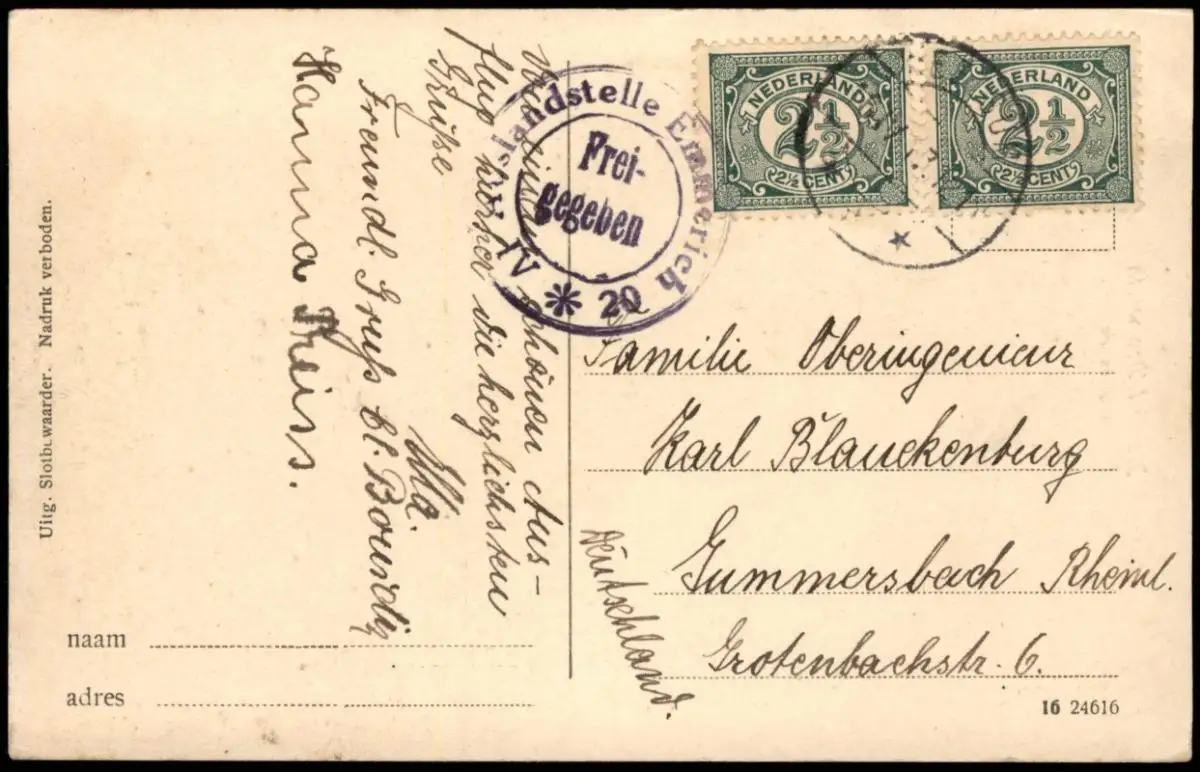 Uitg. Slotbewaarder. Nadruk verboden.
Hanna Theiss.
Freundl. Gruß
Grüße
flug die herzlichsten
schönen Aus-
Auslandstelle Emmerich
Frei-
gegeben
IV * 20
NEDERLAND
2½
2½ CENT
NEDERLAND
2½
2½ CENT
Familie Oberingenieur
Karl Blauckenburg
Gummersbach Rheinl.
Grotenbachstr. 6.
Deutschland.
naam
adres
16 24616